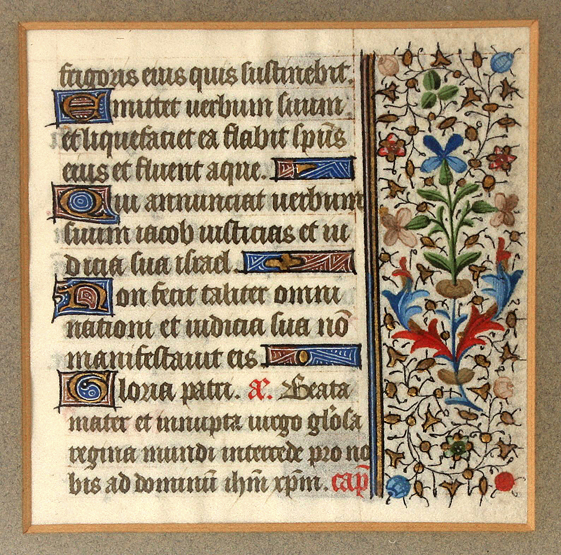 frigoris eius quis sustinebit.
Emittet uerbum suum
et liquefaciet ea flabit sp̄us
eius et fluent aque.
Qui annunciat uerbum
suum iacob iusticias et iu
dicia sua israel
Non fecit taliter omni
nationi et iudicia sua nō
manifestauit eis.
Gloria patri. æ. Beata
mater et innupta uirgo gl'osa
regina mundi intercede pro no
bis ad dominū ihm̄ xpm̄. cap̄